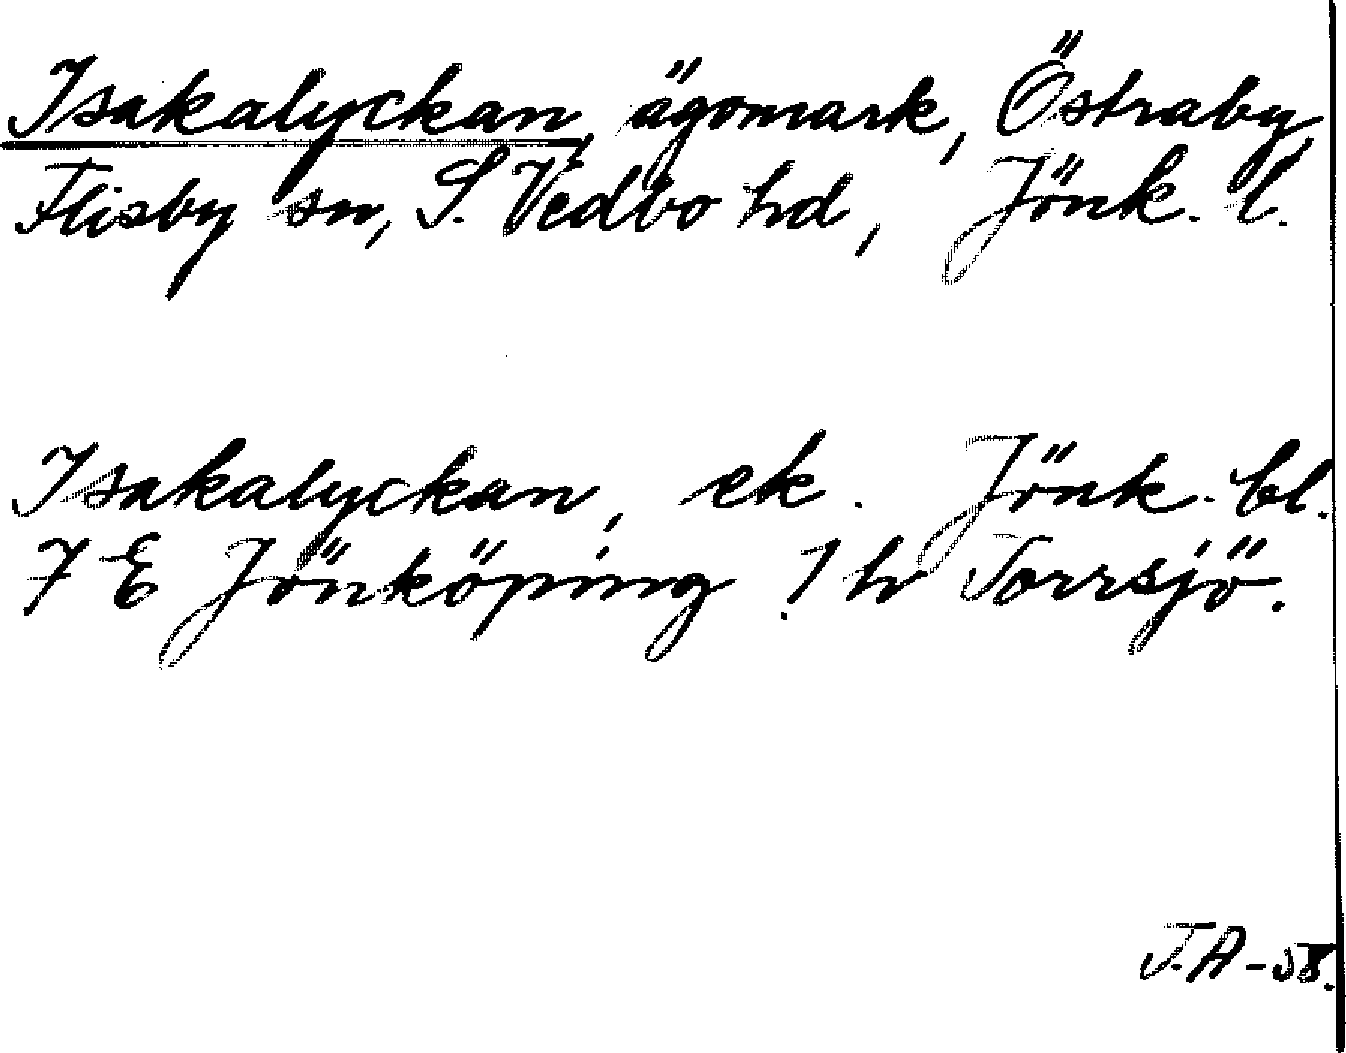 Isakalyckan, ägomark, Östraby,
Flisby sn, S. Vedbo hd, Jönk. l.
Isakalyckan, ek. Jönk. bl.
7 E Jönköping 1 h Torrsjö.
T.A-58.